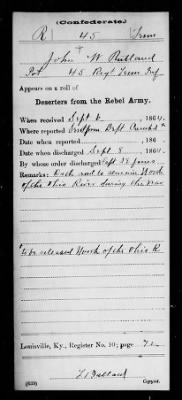 (Confederate.)
R 45 Tenn
John W Rutland
Pvt 45 Reg't Tenn Inf
Appears on a roll of
Deserters from the Rebel Army.
When received Sept 6, 1864.
Where reported Dept
Date reported , 186 .
Date when discharged Sept 8, 1864.
By whose order discharged Capt
Remarks: Oath and to remain North
of the Ohio River during the war
to be released North of the Ohio R.
Louisville, Ky., Register No. 10; page 72
(639)
Copyist.